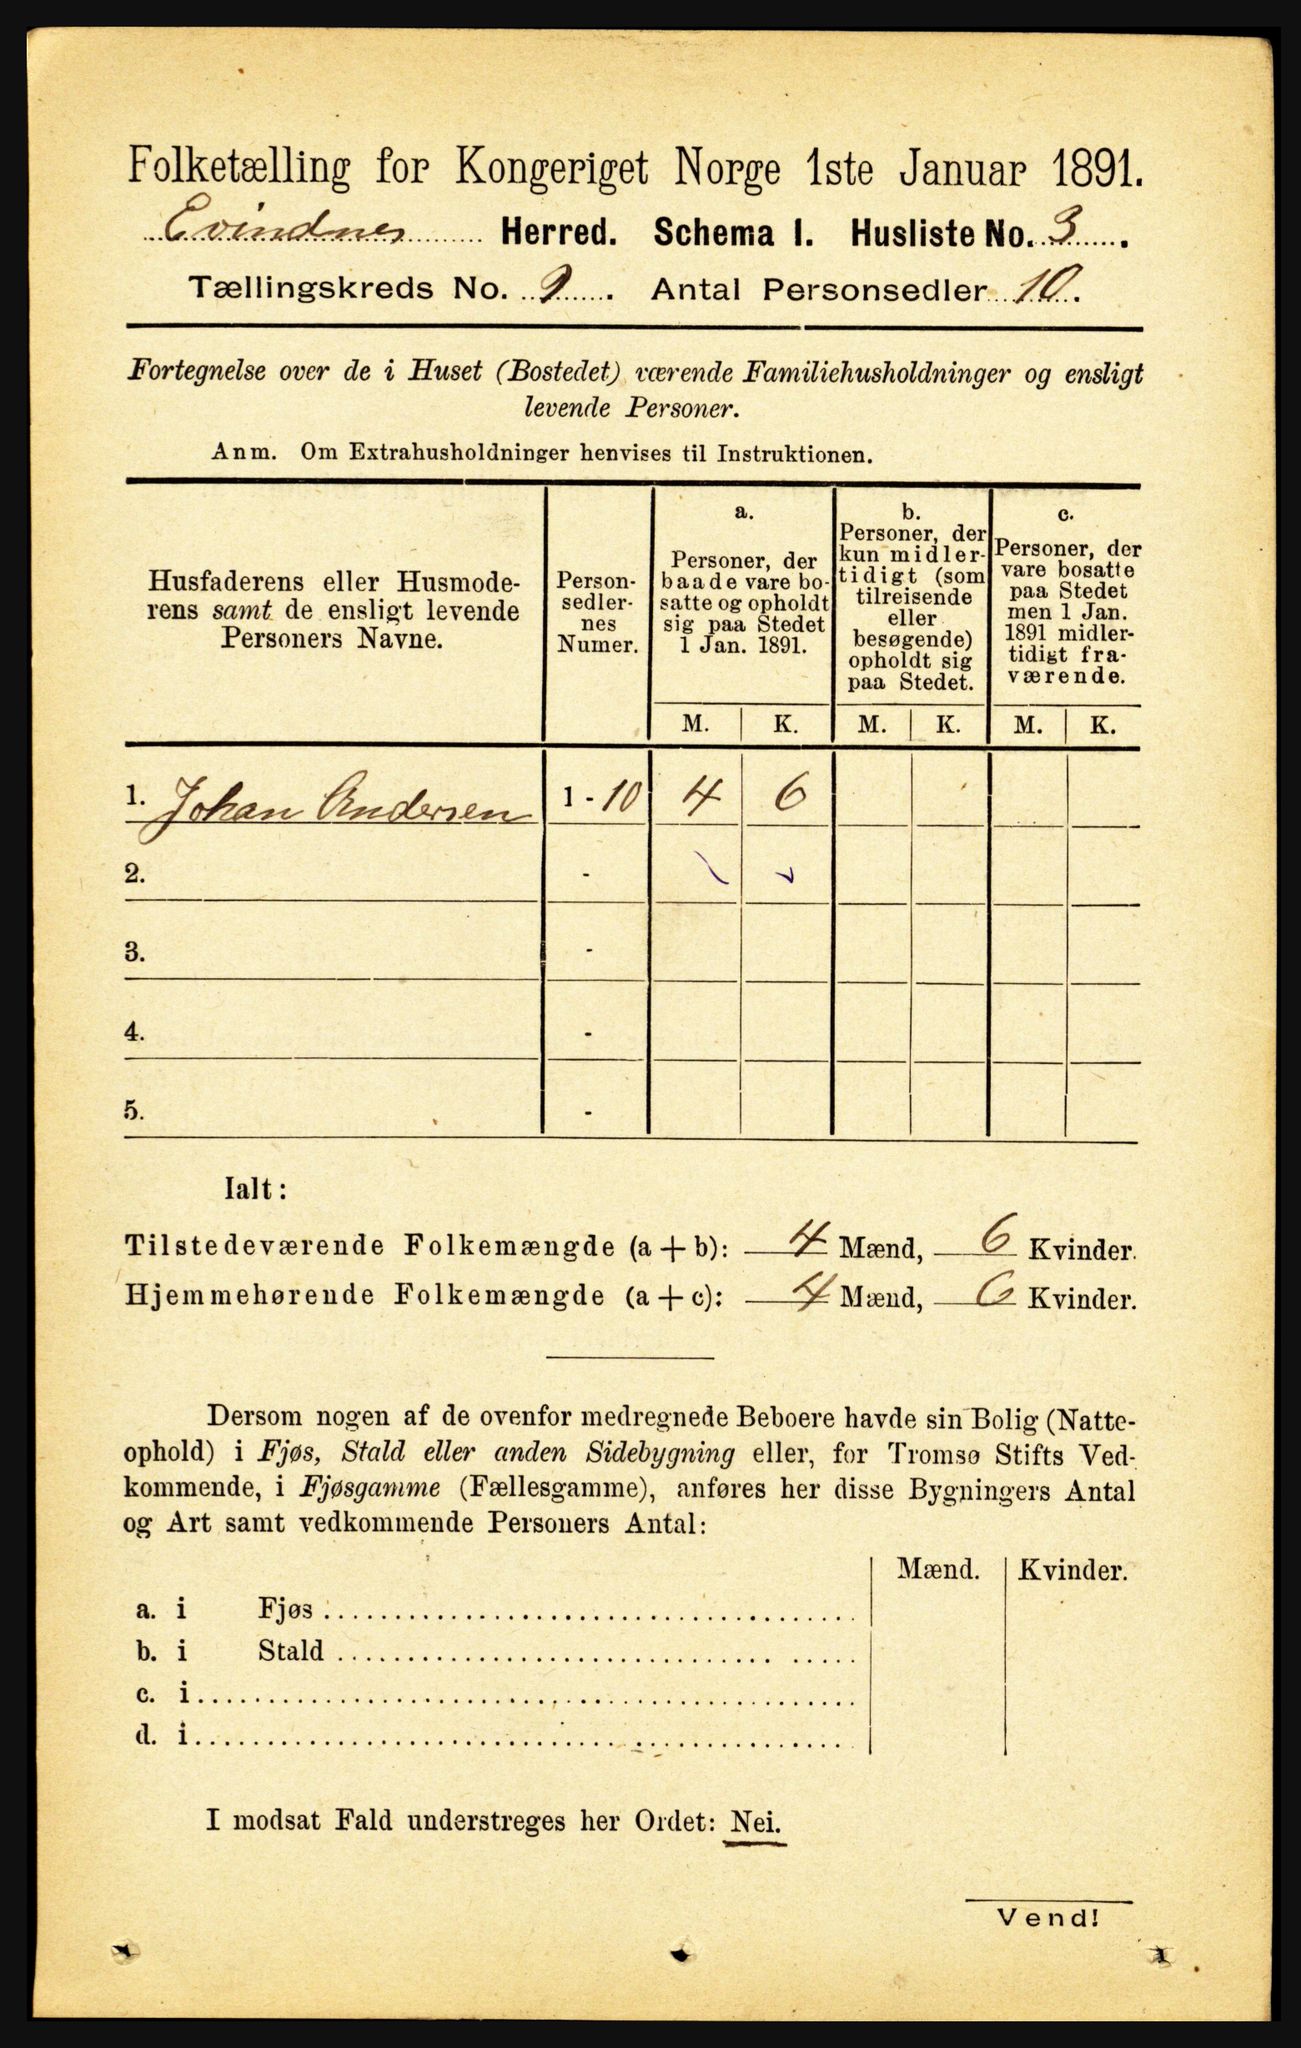 Folketælling for Kongeriget Norge 1ste Januar 1891.
Evindnes Herred. Schema I. Husliste No. 3.
Tællingskreds No. 9. Antal Personsedler 10.
Fortegnelse over de i Huset (Bostedet) værende Familiehusholdninger og ensligt
levende Personer.
Anm. Om Extrahusholdninger henvises til Instruktionen.
Husfaderens eller Husmode-
rens samt de ensligt levende
Personers Navne.
Person-
sedler-
nes
Numer.
a.
Personer, der
baade vare bo-
satte og opholdt
sig paa Stedet
1 Jan. 1891.
b.
Personer, der
kun midler-
tidigt (som
tilreisende
eller
besøgende)
opholdt sig
paa Stedet.
c.
Personer, der
vare bosatte
paa Stedet
men 1 Jan.
1891 midler-
tidigt fra-
værende.
M. K. M. K. M. K.
1. Johan Andersen 1-10 4 6
2. -
3. -
4. -
5. -
Ialt:
Tilstedeværende Folkemængde (a+b): 4 Mænd, 6 Kvinder.
Hjemmehørende Folkemængde (a+c): 4 Mænd, 6 Kvinder.
Dersom nogen af de ovenfor medregnede Beboere havde sin Bolig (Natte-
ophold) i Fjøs, Stald eller anden Sidebygning eller, for Tromsø Stifts Ved-
kommende, i Fjøsgamme (Fællesgamme), anføres her disse Bygningers Antal
og Art samt vedkommende Personers Antal:
Mænd. Kvinder.
a. i Fjøs
b. i Stald
c. i
d. i
I modsat Fald understreges her Ordet: Nei.
Vend!